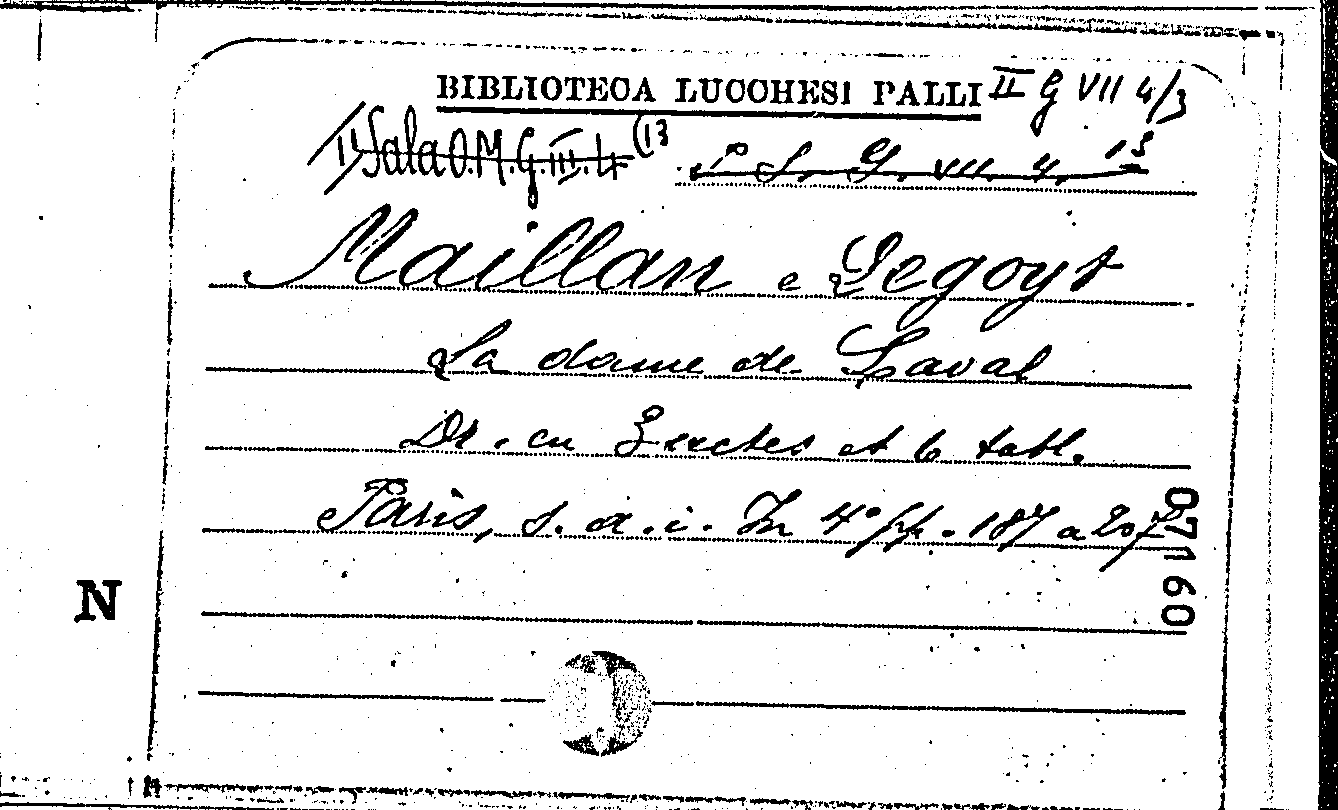 BIBLIOTECA LUCCHESI PALLI II G VII 4/3
II Sala O.M.G.III.4 (13
P. S. G. VII. 4. 13
Maillan e Legoyt
La dame de Laval
Dr. en 3 actes et 6 tabl.
Paris, s. a. i. In 4° pp. 187 a 207
07160
N